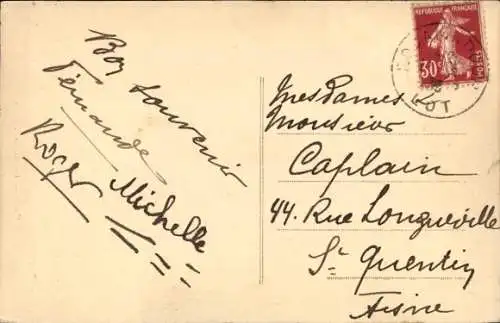 Bon souvenir
Fernande
Roger Michelle
REPUBLIQUE FRANÇAISE
30c
POSTES
LOT
Mesdames
Monsieur
Caplain
44. Rue Longueville
St Quentin
Aisne